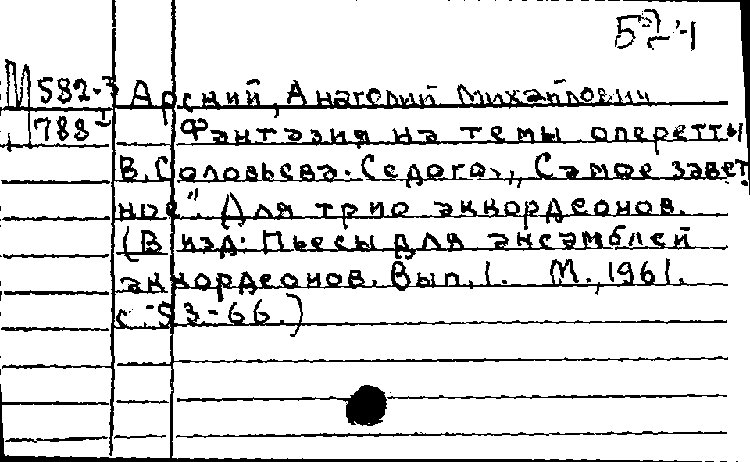 М 582-3 Арский, Анатолий Михайлович
788 I Фантазия на темы оперетты
В. Соловьева-Седого „Самое завет
ное". Для трио аккордеонов.
(В изд: Пьесы для ансамблей
аккордеонов. Вып. 1. М., 1961.
с. 53-66.)